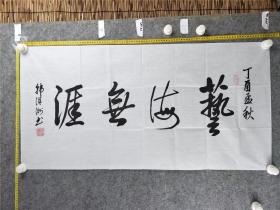 丁酉孟秋
藝海無涯
韩汉洲书